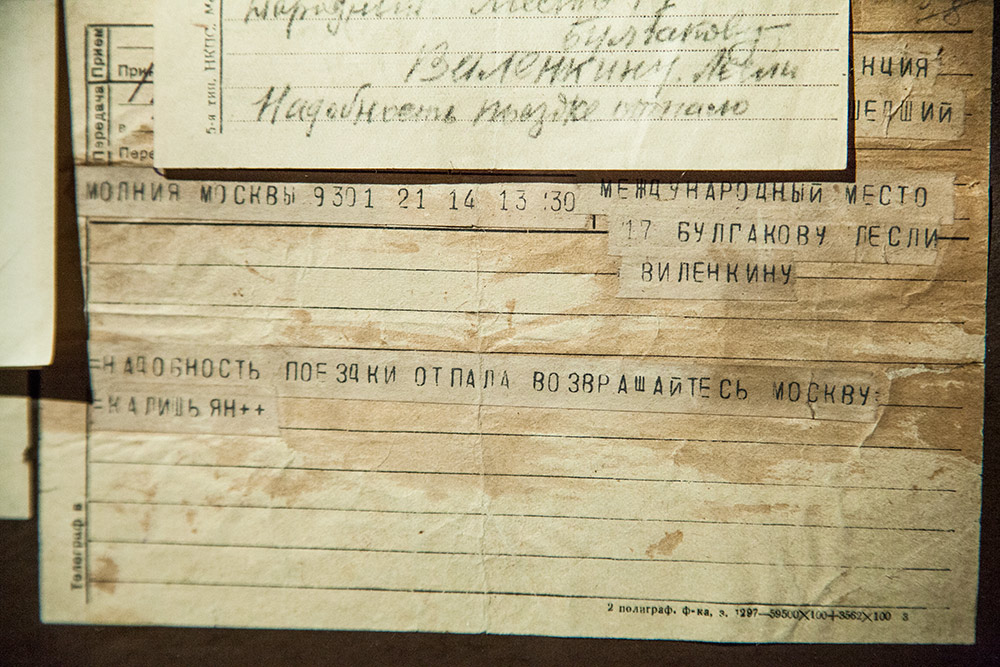 место 17
Булгакову
Виленкину. Лесли
Надобность поездке отпало
5-я тип. НКПС.
Прием
Передача
НЦИЯ
ШЕДШИЙ
МОЛНИЯ МОСКВЫ 9301 21 14 13 30 МЕЖДУНАРОДНЫЙ МЕСТО
17 БУЛГАКОВУ ЛЕСЛИ
ВИЛЕНКИНУ
=НАДОБНОСТЬ ПОЕЗДКИ ОТПАЛА ВОЗВРАШАЙТЕСЬ МОСКВУ=
=КАЛИШЬЯН++
Телеграф в
2 полиграф. ф-ка, з. 1297—59500X100+3562X100 3